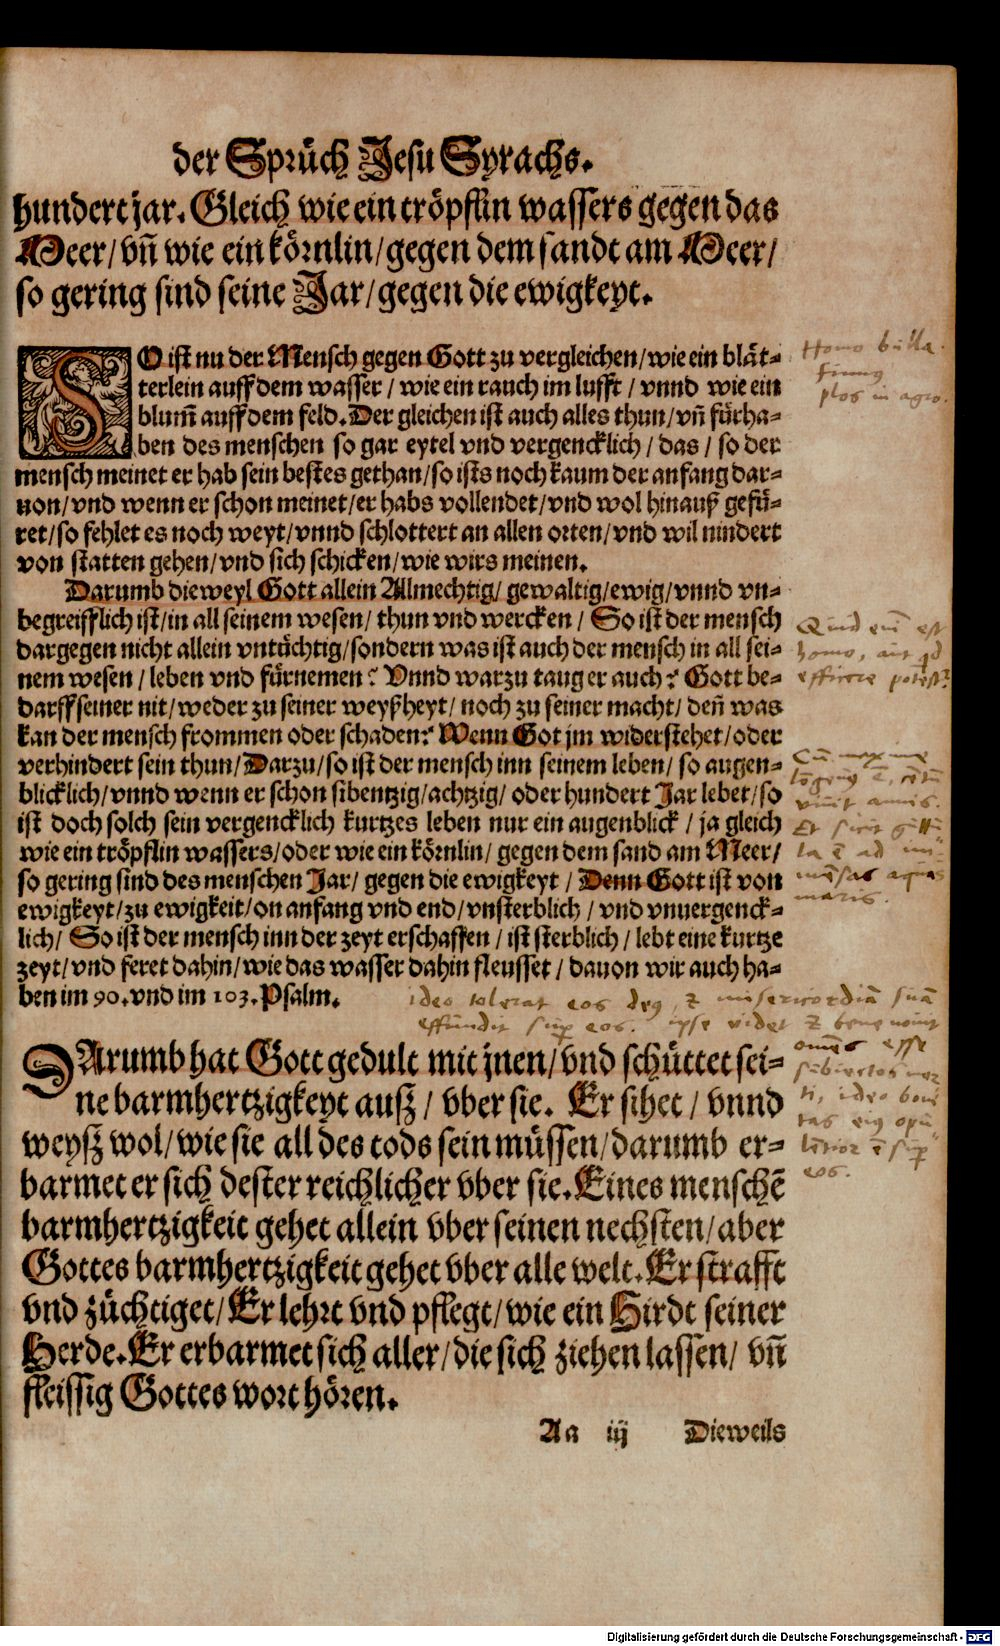 der Sprüch Jesu Syrachs.
hundert jar. Gleich wie ein tröpflin wassers gegen das
Meer/ vñ wie ein körnlin/ gegen dem sandt am Meer/
so gering sind seine Jar/ gegen die ewigkeyt.
SO ist nu der Mensch gegen Gott zu vergleichen/ wie ein blät=
terlein auff dem wasser / wie ein rauch im lufft / vnnd wie ein
blum̃ auff dem feld. Der gleichen ist auch alles thun/ vñ fürha=
ben des menschen so gar eytel vnd vergencklich / das / so der
mensch meinet er hab sein bestes gethan/ so ists noch kaum der anfang dar=
uon/ vnd wenn er schon meinet/ er habs vollendet/ vnd wol hinauß gefü=
ret/ so fehlet es noch weyt/ vnnd schlottert an allen orten/ vnd wil nindert
von statten gehen/ vnd sich schicken/ wie wirs meinen.
Darumb dieweyl Gott allein Allmechtig/ gewaltig/ ewig/ vnnd vn=
begreifflich ist/ in all seinem wesen/ thun vnd wercken / So ist der mensch
dargegen nicht allein vntüchtig/ sondern was ist auch der mensch in all sei=
nem wesen / leben vnd fürnemen? Vnnd warzu taug er auch? Gott be=
darff seiner nit/ weder zu seiner weyßheyt/ noch zu seiner macht/ deñ was
kan der mensch frommen oder schaden? Wenn Got jm widerstehet/ oder
verhindert sein thun/ Darzu/ so ist der mensch inn seinem leben/ so augen=
blicklich/ vnnd wenn er schon sibentzig/ achtzig/ oder hundert Jar lebet/ so
ist doch solch sein vergencklich kurtzes leben nur ein augenblick / ja gleich
wie ein tröpflin wassers/ oder wie ein körnlin/ gegen dem sand am Meer/
so gering sind des menschen Jar/ gegen die ewigkeyt / Denn Gott ist von
ewigkeyt/ zu ewigkeit/ on anfang vnd end/ vnsterblich / vnd vnuergenck=
lich/ So ist der mensch inn der zeyt erschaffen / ist sterblich / lebt eine kurtze
zeyt/ vnd feret dahin/ wie das wasser dahin fleusset / dauon wir auch ha=
ben im 90. vnd im 103. Psalm.
DArumb hat Gott gedult mit jnen/ vnd schüttet sei=
ne barmhertzigkeyt außz / vber sie. Er sihet / vnnd
weysz wol/ wie sie all des tods sein müssen/ darumb er=
barmet er sich dester reichlicher vber sie. Eines menschẽ
barmhertzigkeit gehet allein vber seinen nechsten/ aber
Gottes barmhertzigkeit gehet vber alle welt. Er strafft
vnd züchtiget/ Er lehrt vnd pflegt/ wie ein Hirdt seiner
Herde. Er erbarmet sich aller/ die sich ziehen lassen/ vñ
fleissig Gottes wort hören.
Aa iij Dieweils
Homo bulla.
flos in agro.
Quid em̄ est
homo, aut qd
efficere potest?
maris.
ideo tolerat eos deus, & misericordiā suā
effundit sup eos. ipse videt & bene novit
omēs esse
eos.
Digitalisierung gefördert durch die Deutsche Forschungsgemeinschaft - DFG